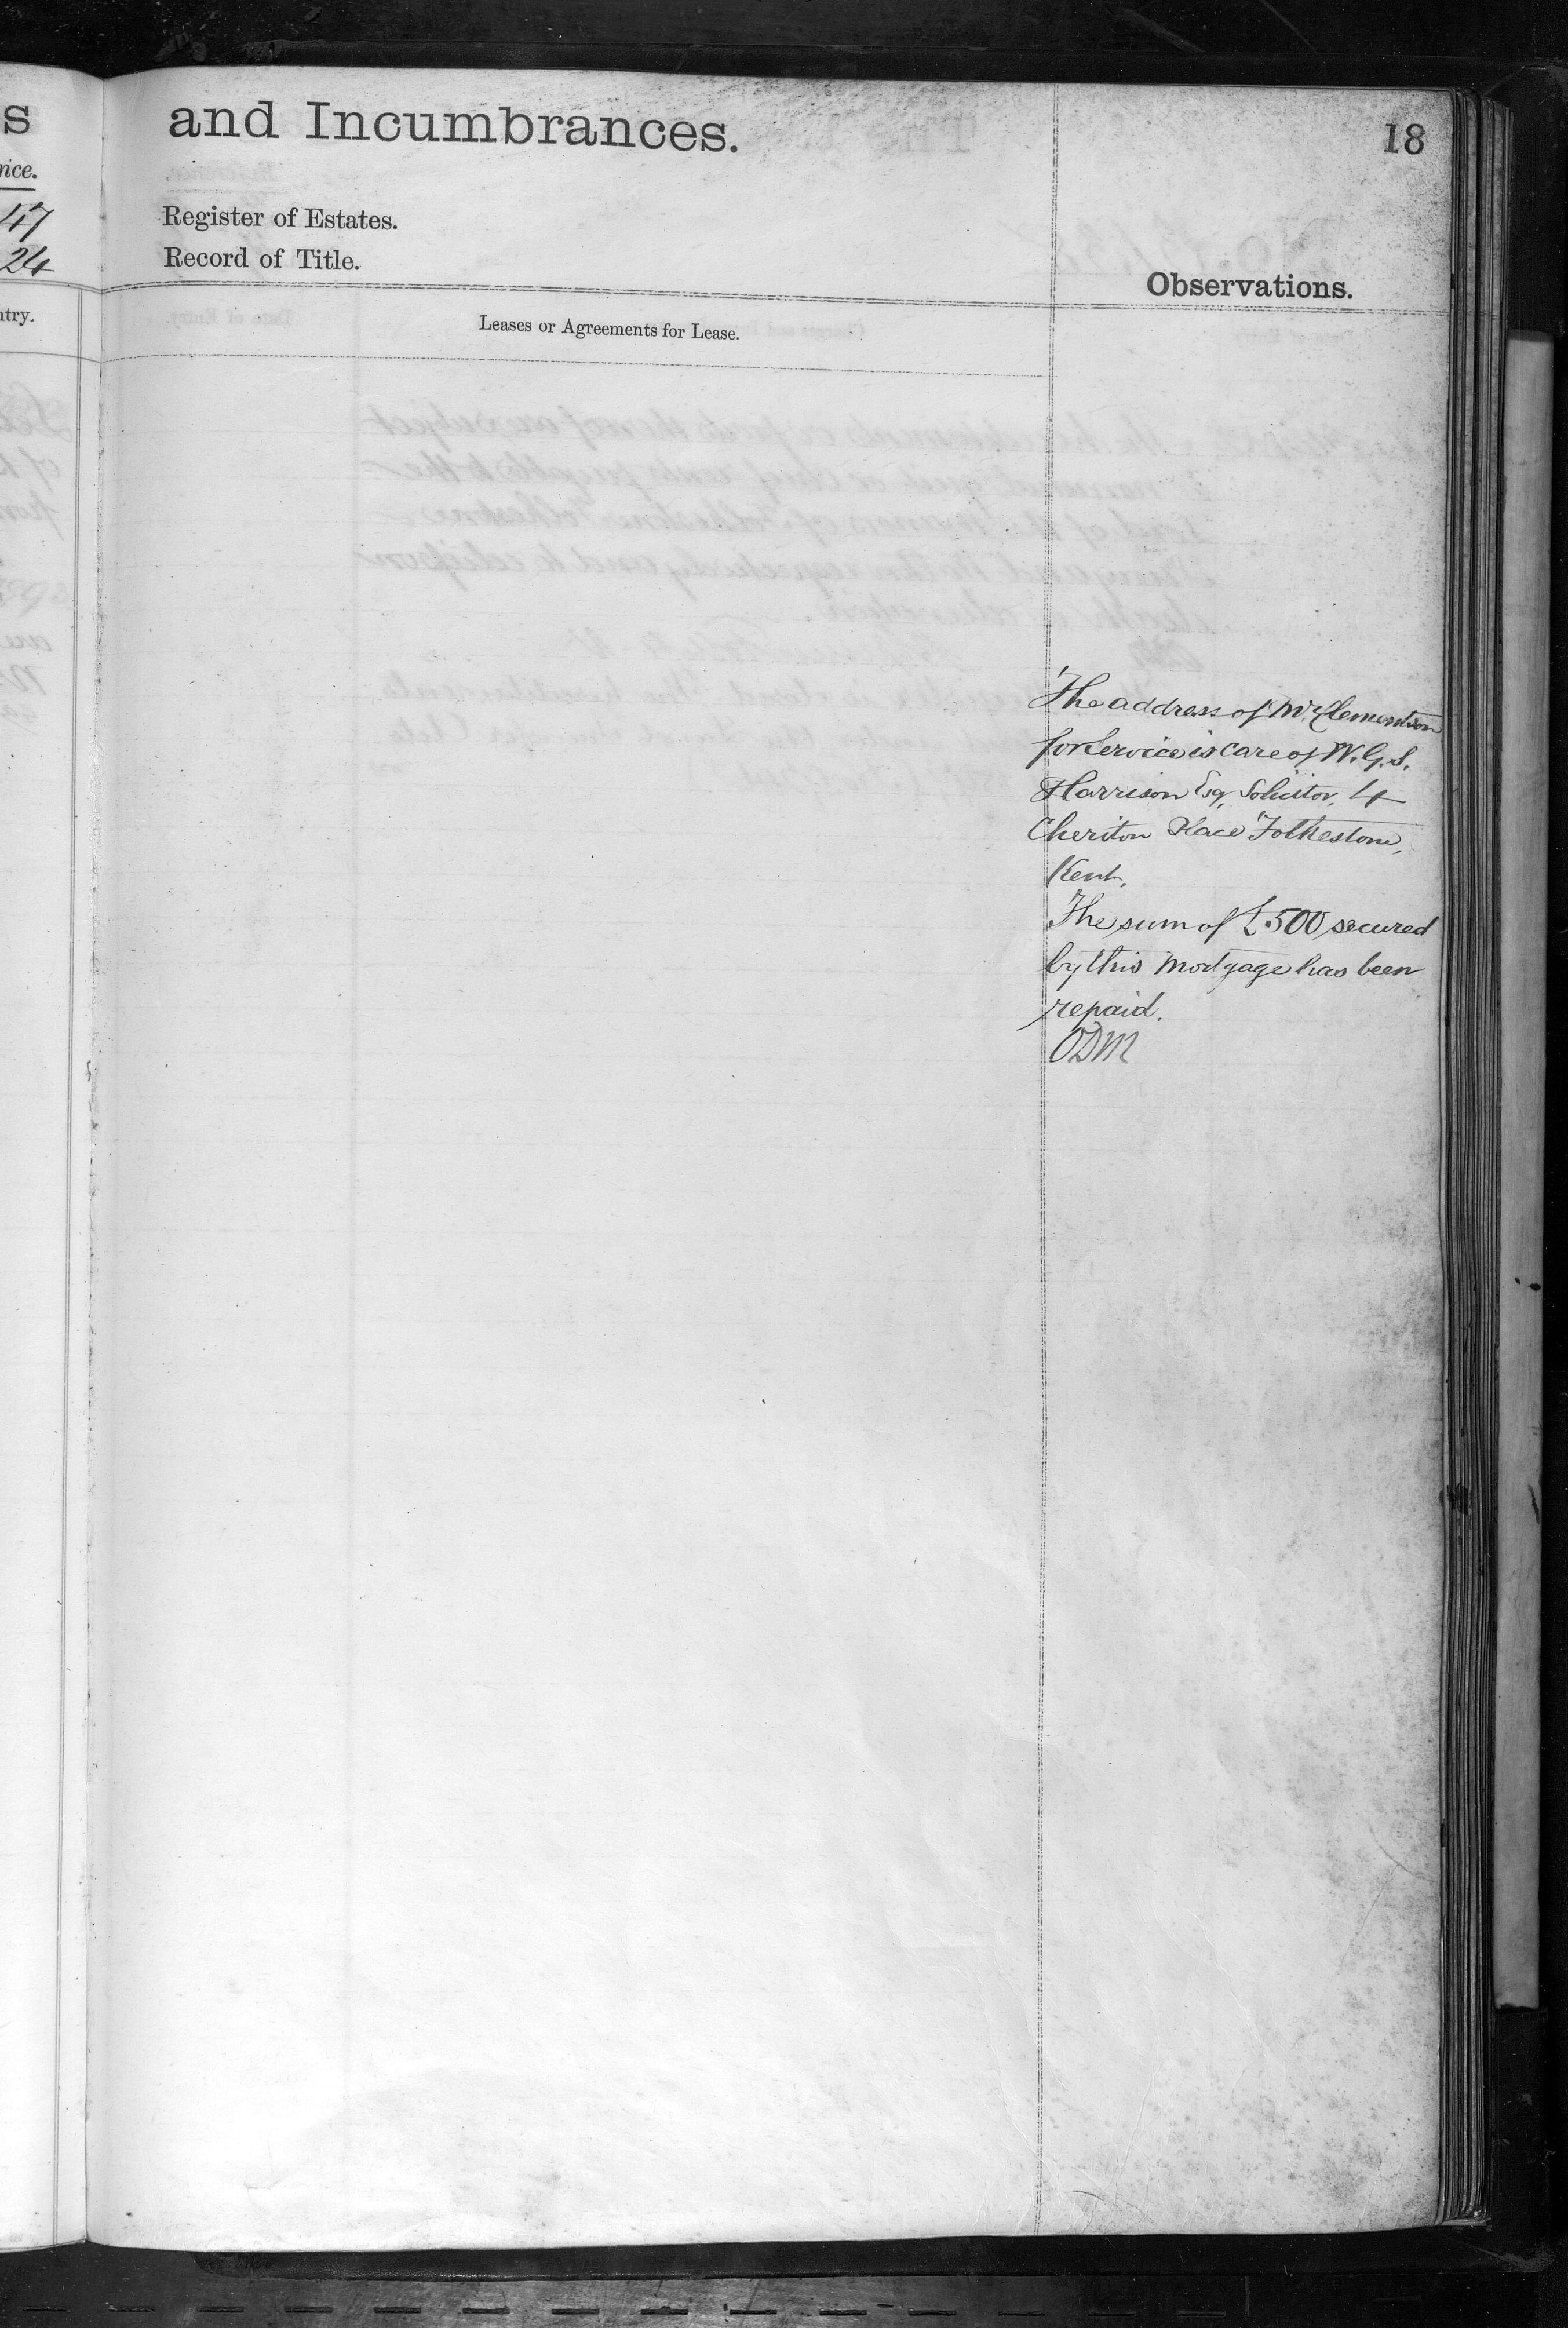 s
and Incumbrances.
18
nce.
47
Register of Estates.
24
Record of Title.
Observations.
ntry.
Leases or Agreements for Lease.
The address of Mr Clementson
for Service is Care of W. G. S.
Harrison Esq, Solicitor, 4
Cheriton Place Folkestone,
Kent,
The sum of £500 secured
by this Mortgage has been
repaid.
ODM